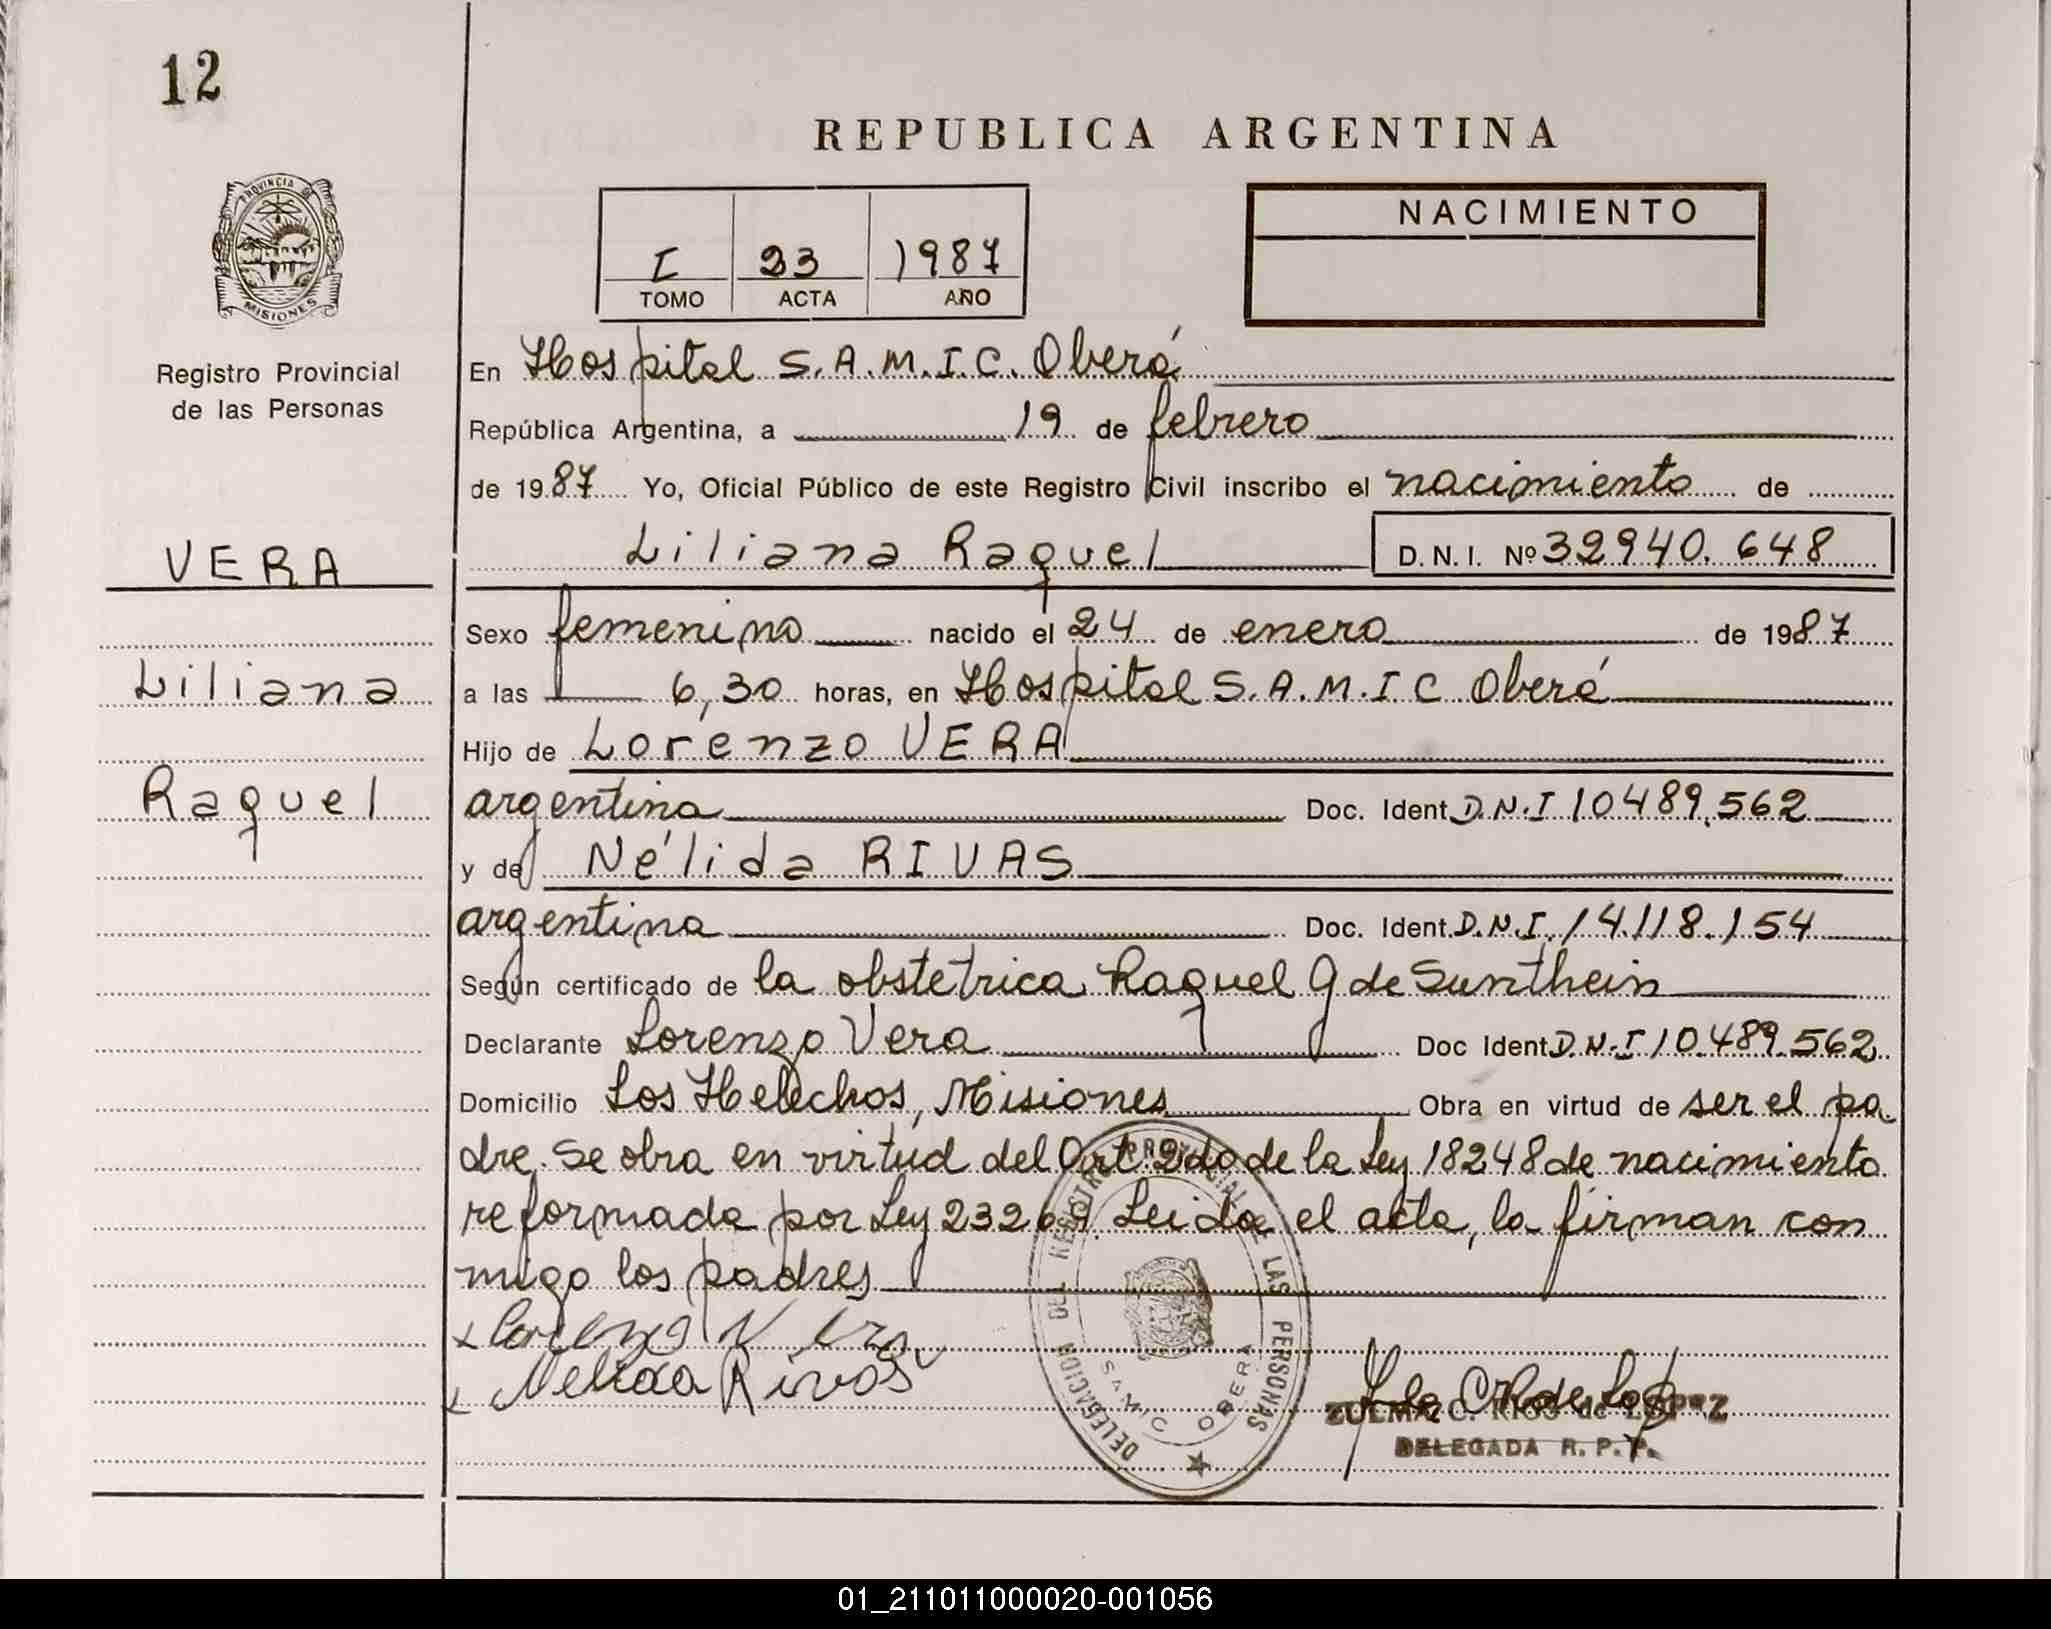 12
REPUBLICA ARGENTINA
PROVINCIA DE
MISIONES
I 23 1987
TOMO ACTA AÑO
NACIMIENTO
Registro Provincial
de las Personas
En Hospital S.A.M.I.C. Oberá
República Argentina, a 19 de febrero
de 1987 Yo, Oficial Público de este Registro Civil inscribo el nacimiento de
Liliana Raquel D.N.I. Nº 32940.648
VERA
Liliana
Raquel
Sexo femenino nacido el 24 de enero de 1987
a las 6,30 horas, en Hospital S.A.M.I.C Oberá
Hijo de Lorenzo VERA
argentina Doc. Ident. D.N.I 10489.562
y de Nélida RIVAS
argentina Doc. Ident. D.N.I. 14.118.154
Según certificado de la obstetrica Raquel G de Sunthein
Declarante Lorenzo Vera Doc Ident D.N.I 10.489.562
Domicilio Los Helechos, Misiones Obra en virtud de ser el pa
dre. Se obra en virtud del Art. 2do de la Ley 18248 de nacimiento
reformada por Ley 23264. Leida el acta, la firman con
migo los padres
Lorenzo Vera
Nelida Rivas
DELEGACION DEL REGISTRO PROVINCIAL DE LAS PERSONAS
SAMIC OBERA
ZULMA C. RIOS de LOPEZ
DELEGADA R.P.P.
01_211011000020-001056